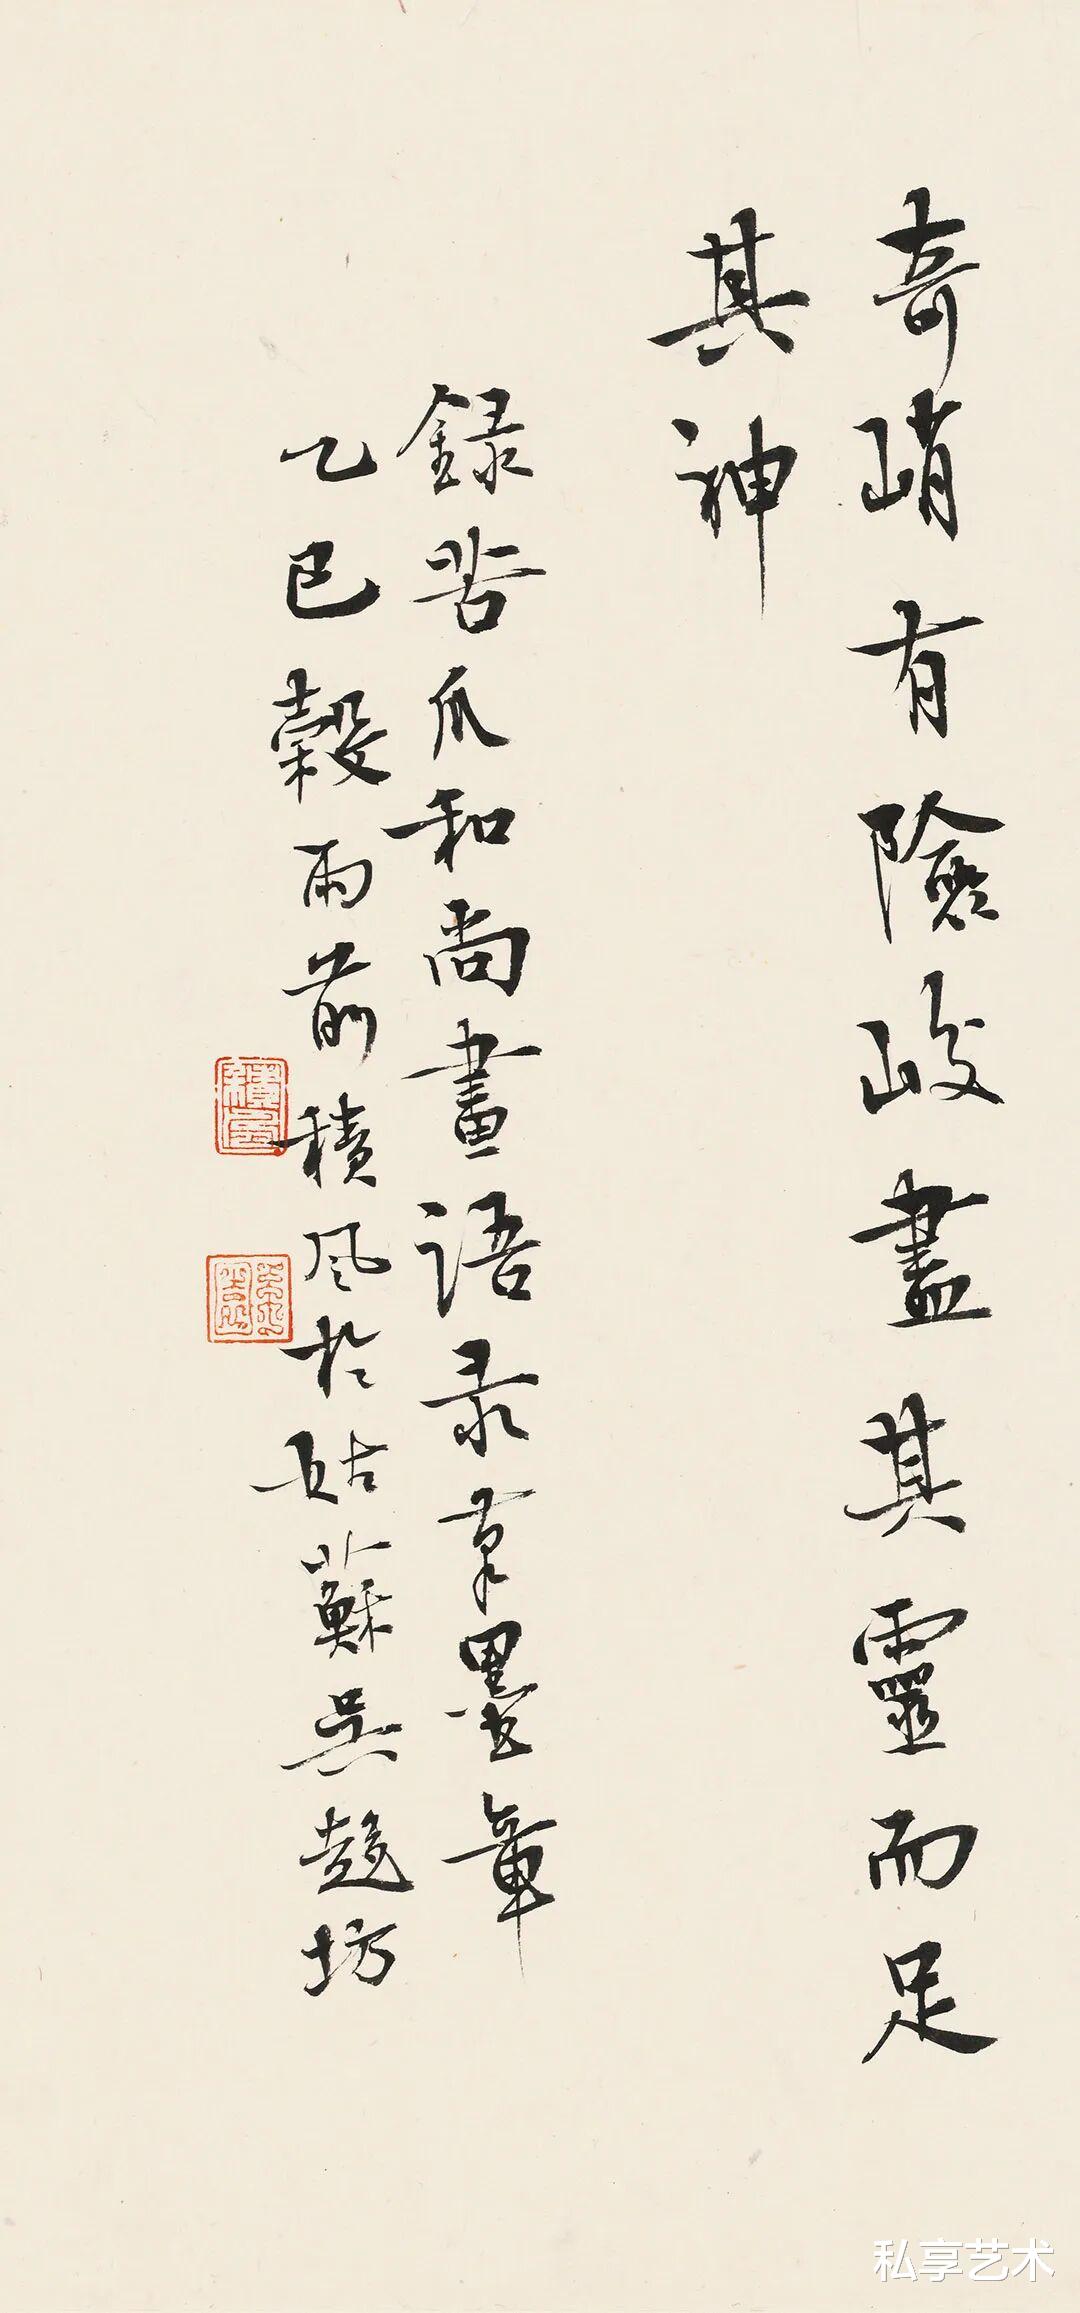 奇峭有險峻盡其靈而足
其神
錄苦瓜和尚畫語录筆墨章
乙巳穀雨前積風於姑蘇吳趨坊
積風
私享艺术